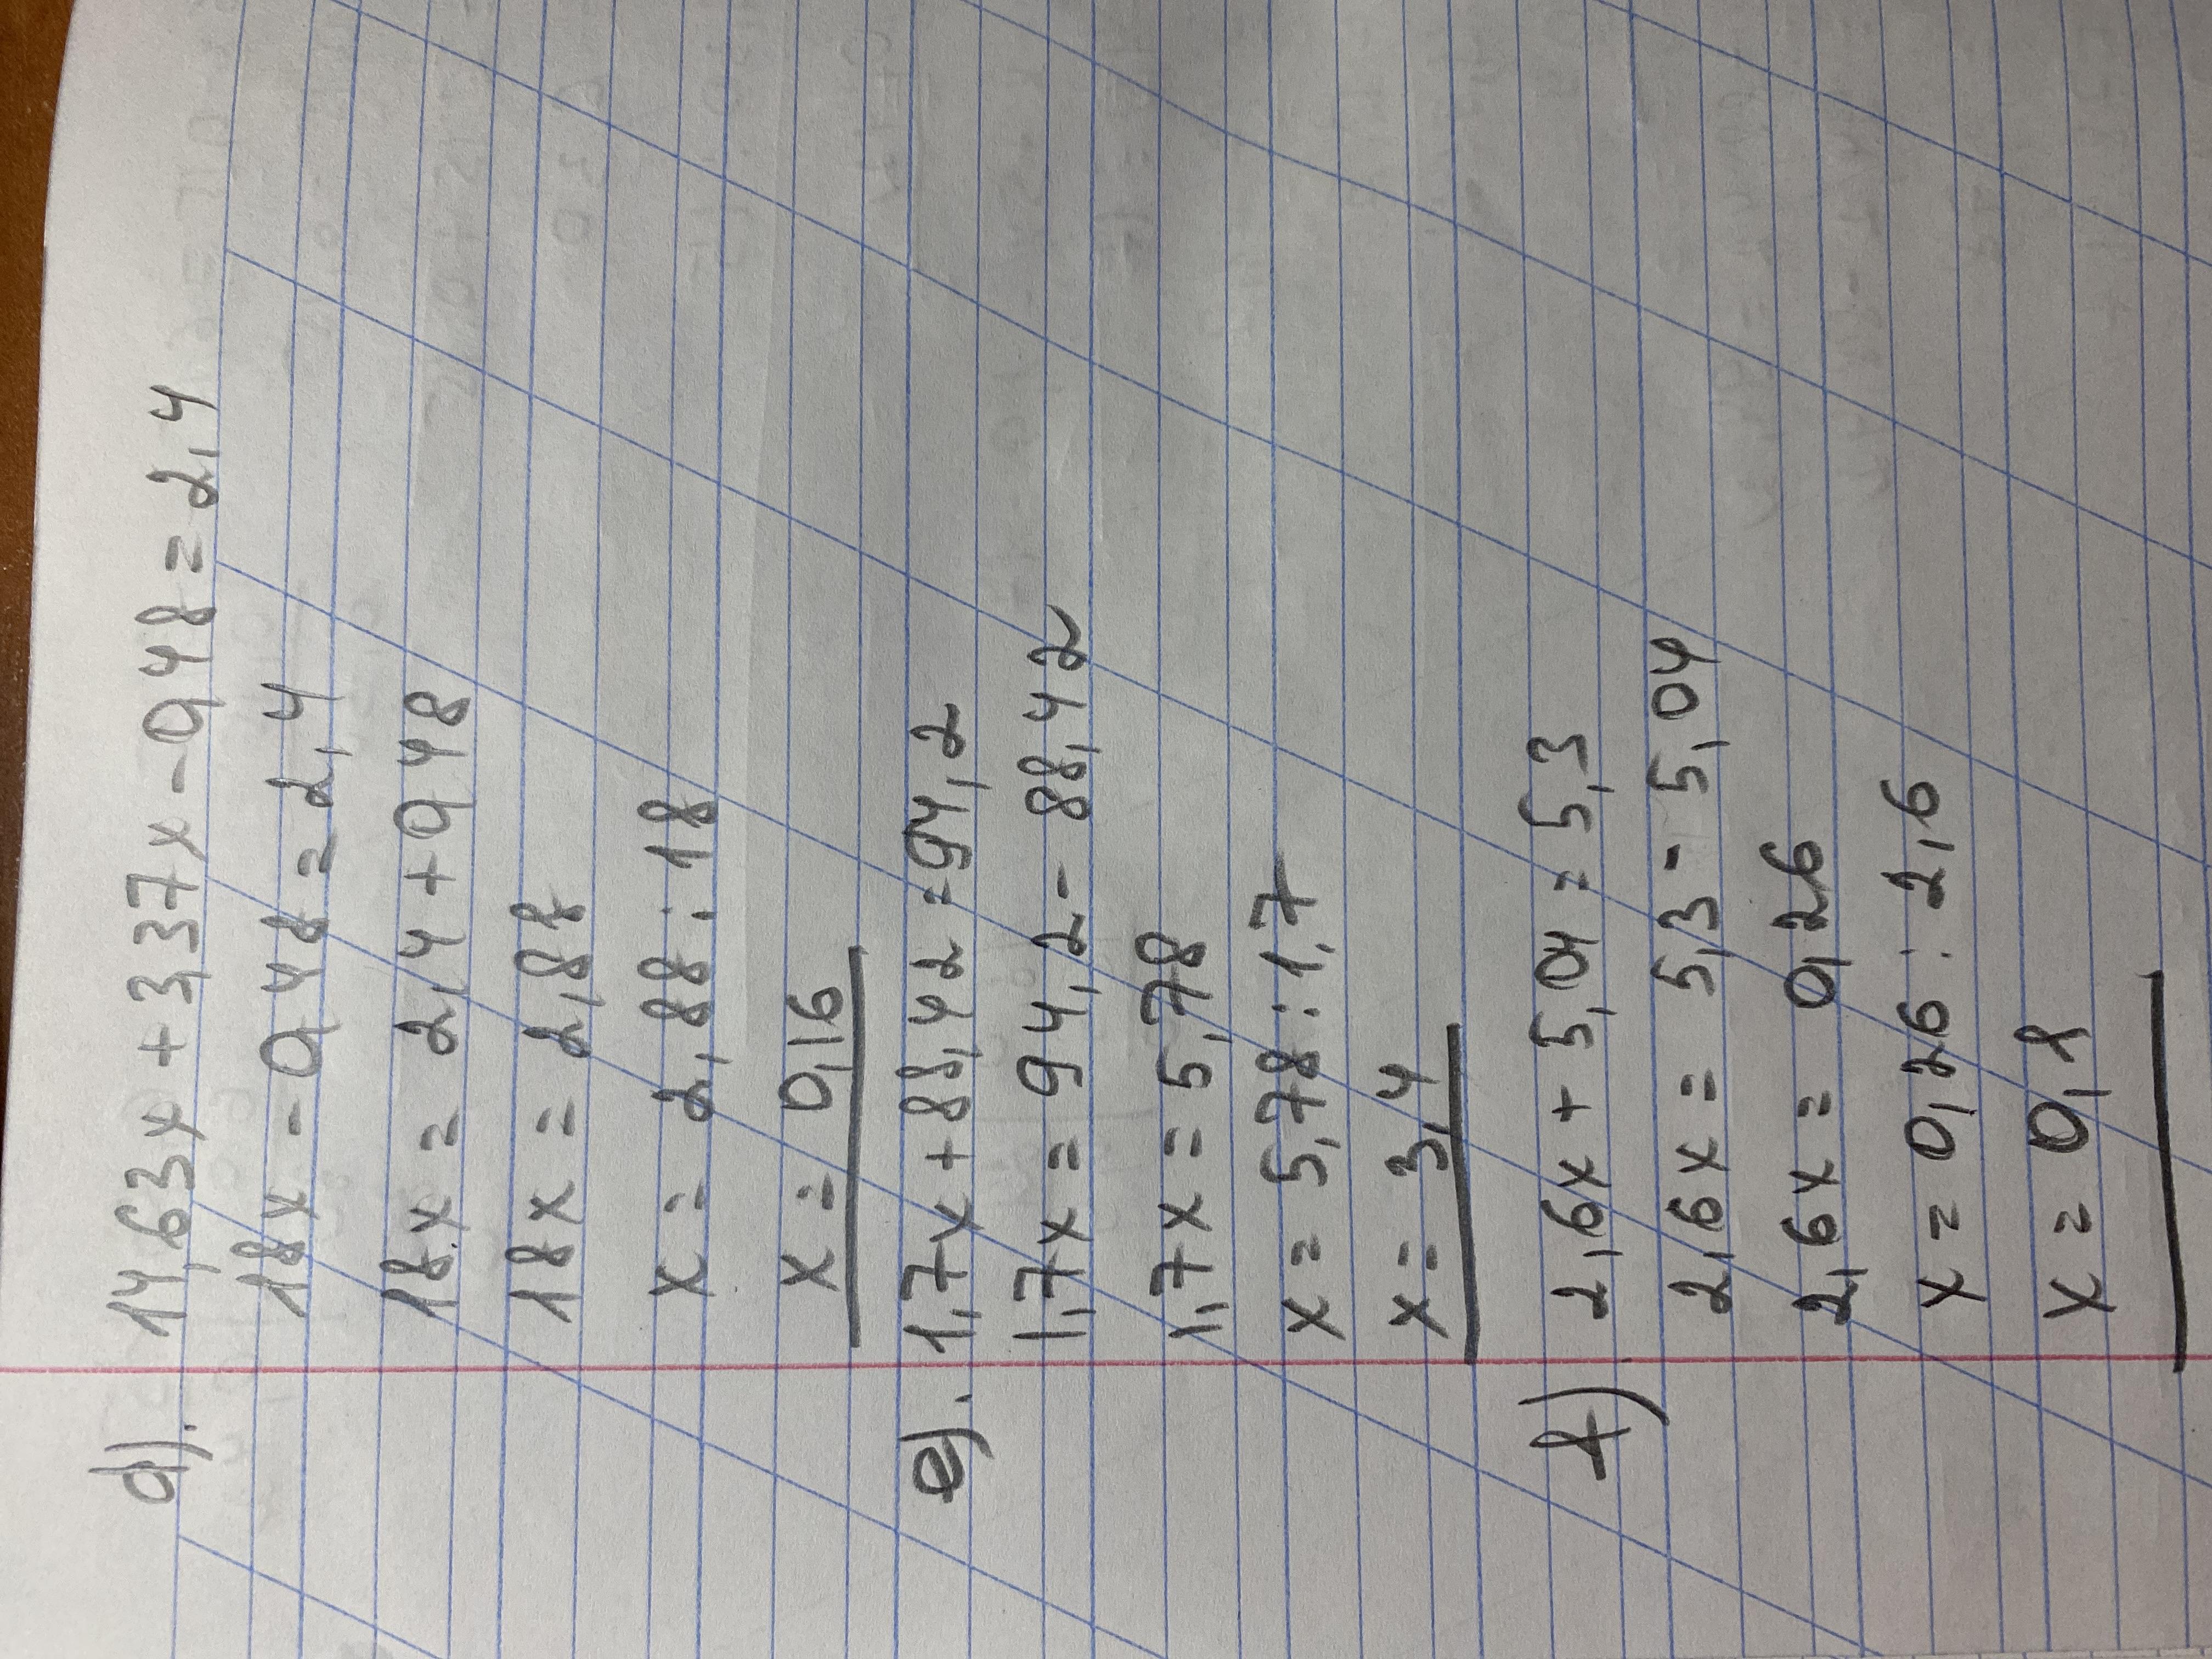 d). 14,63x + 3,37x - 0,48 = 2,4
18x - 0,48 = 2,4
18x = 2,4 + 0,48
18x = 2,88
x = 2,88 : 18
x = 0,16
e). 1,7x + 88,42 = 94,2
1,7x = 94,2 - 88,42
1,7x = 5,78
x = 5,78 : 1,7
x = 3,4
f) 2,6x + 5,04 = 5,3
2,6x = 5,3 - 5,04
2,6x = 0,26
x = 0,26 : 2,6
x = 0,1